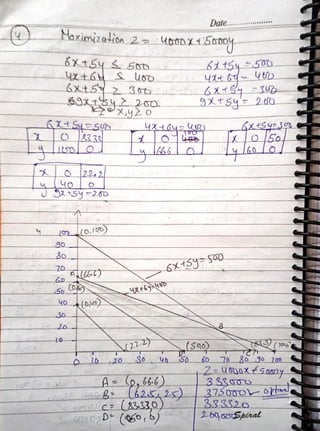 Date
4 Maximization Z = 4000x + 5000y
6x+5y ≤ 500 6x+5y = 500
4x+6y ≤ 400 4x+6y = 400
6x+5y ≥ 300 6x+5y = 300
9x+5y ≥ 200 9x+5y = 200
x,y ≥ 0
6x+5y=500 4x+6y=400 6x+5y=300
x 0 83.33 x 0 x 0 50
y 100 0 y 66.6 0 y 60 0
x 0 22.2
y 40 0
9x+5y=200
y 100 (0,100)
90
80
70
60 A (66.6) 6x+5y=500
50 4x+6y=400
40 (0,40)
30
20 B
10
(22.2) (83.3)
0 10 20 30 40 50 60 70 80 90 100
Z = 4000x + 5000y
A = (0, 66.6) 333000
B = (62.5, 25) 375000 optimal
C = (83.33, 0) 333320
D = (50, 0) 200000
Spiral